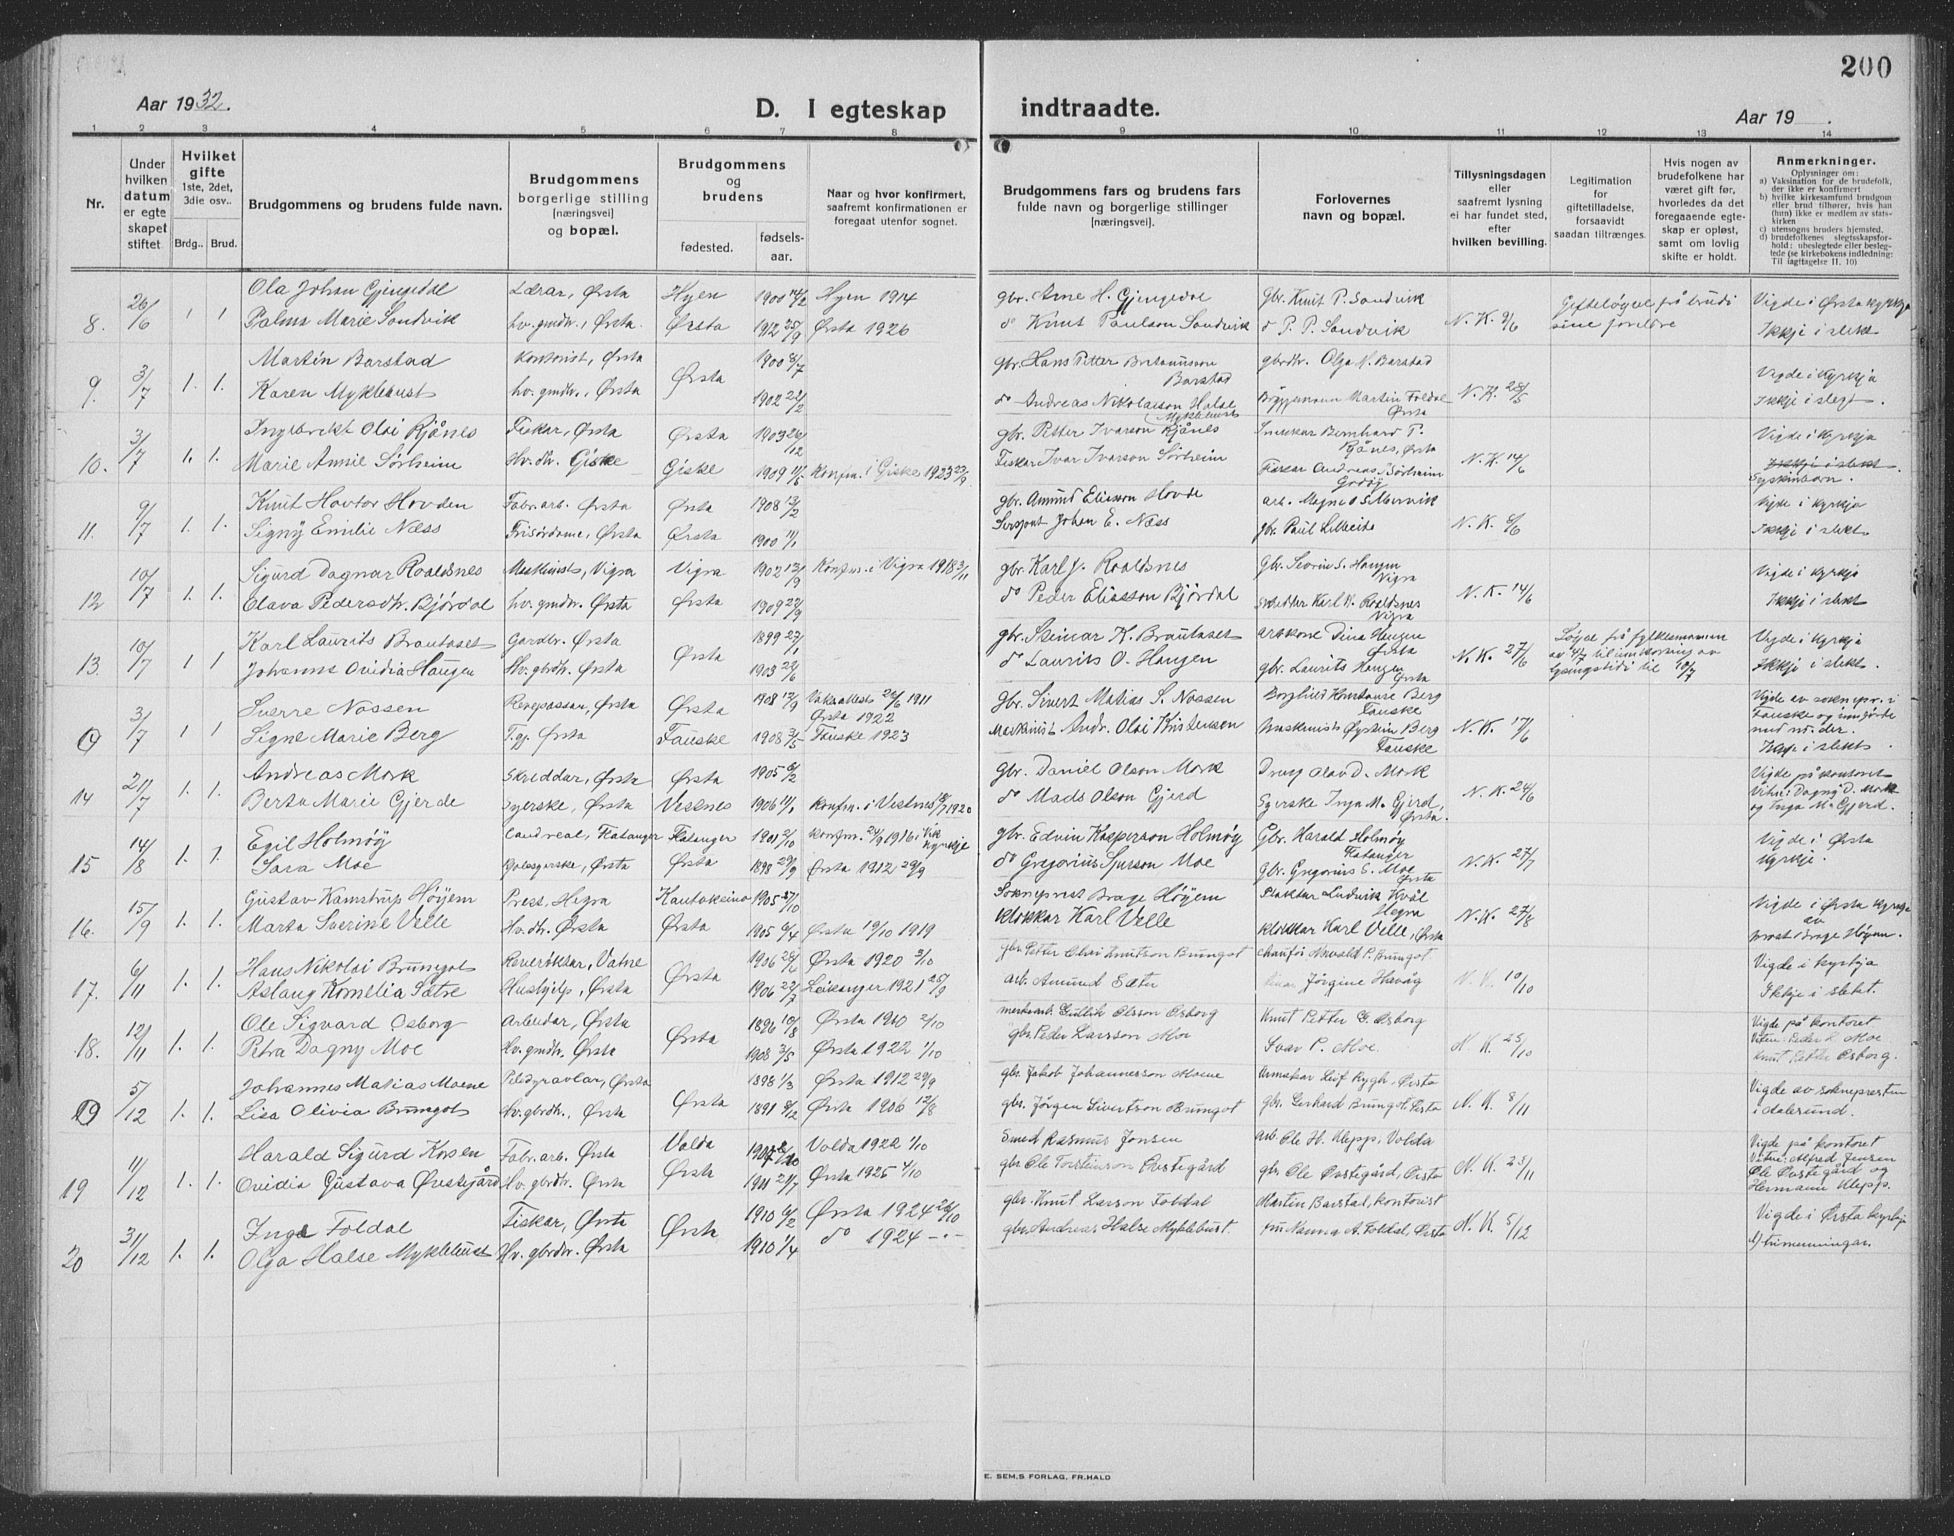 200
Aar 1932.
D. I egteskap indtraadte.
Aar 19 .
1 2 3 4 5 6 7 8 9 10 11 12 13 14
Nr.
Under hvilken datum er egteskapet stiftet.
Hvilket gifte 1ste, 2det, 3die osv..
Brdg.. Brud.
Brudgommens og brudens fulde navn.
Brudgommens borgerlige stilling [næringsvei] og bopæl.
Brudgommens og brudens
fødested. fødsels-aar.
Naar og hvor konfirmert, saafremt konfirmationen er foregaat utenfor sognet.
Brudgommens fars og brudens fars fulde navn og borgerlige stillinger [næringsvei].
Forlovernes navn og bopæl.
Tillysningsdagen eller saafremt lysning ei har fundet sted, efter hvilken bevilling.
Legitimation for giftetilladelse, forsaavidt saadan tiltrænges.
Hvis nogen av brudefolkene har været gift før, hvorledes da det foregaaende egteskap er opløst, samt om lovlig skifte er holdt.
Anmerkninger.
Oplysninger om:
a) Vaksination for de brudefolk, der ikke er konfirmert
b) hvilke kirkesamfund brudgom eller brud tilhører, hvis han (hun) ikke er medlem av statskirken
c) utensogns bruders hjemsted.
d) brudefolkenes slegtsskapsforhold: ubeslegtede eller beslegtede (se kirkebokens indledning: Til iagttagelse II. 10)
Ola Johan Gjengedal Lærar, Ørsta Hyen 1900 Hyen 1914 gbr. Arne H. Gjengedal Gbr. Knut P. Sandvik Gifteløyve frå brudi Vigde i Ørsta kyrkja
8. 26/6 1 1 Palma Marie Sandvik hv. gmdtr., Ørsta Ørsta 1912 25/9 Ørsta 1926 do Knut Paulson Sandvik do P. P. Sandvik N.K. 9/6 sine foreldre Ikkje i slekt
Martin Barstad Kontorist, Ørsta 1900 8/7 gbr. Hans Petter Barstad gbrdtr. Olga N. Barstad Vigde i kyrkja
9. 3/7 1. 1. Karen Myklebust hv. gmdtr., Ørsta Ørsta 1902 22/2 do Andreas Nikolaison Halse Myklebust Martin Foldal Ørsta N.K. 28/5 Ikkje i slegt
Ingebrikt Olai Rjånes Fiskar, Ørsta Ørsta 1903 26/12 gbr. Petter Ivarson Rjånes Bernhard P. Rjånes, Ørsta Vigde i kyrkja
10. 3/7 1. 1. Marie Annie Sørheim Hv. dtr. Giske Giske 1909 11/5 Konfm. i Giske 1923 23/9 Fiskar Ivar Ivarson Sørheim Fiskar Andreas Sørheim Godøy N.K. 14/6 Ikkje i slekt. Syskinbarn.
Knut Hovtor Hovden Fabr. arb. Ørsta Ørsta 1908 13/2 gbr. Amund Eliasson Hovde arb. Magne Vigde i kyrkja
11. 9/7 1. 1. Signy Emilie Næss Frisørdame, Ørsta Ørsta 1900 11/1 Sersjant Johan E. Næss gbr. Paul N.K. 6/6 Ikkje i slekt.
Sigurd Dagnar Roaldsnes Maskinist, Vigra Vigra 1902 13/9 Konfm. i Vigra 1918 3/11 gbr. Karl J. Roaldsnes Gbr. Severin S. Haugen Vigra Vigde i kyrkja
12 10/7 1. 1. Olava Pedersdtr. Bjørdal hv. gmdtr. Ørsta Ørsta 1909 22/9 do Peder Eliasson Bjørdal Karl K. Roaldsnes Vigra N.K. 14/6 Ikkje i slekt.
Karl Laurits Brautaset Gardbr. Ørsta 1899 27/1 gbr. Steinar K. Brautaset Dina Haugen Ørsta Løyve frå fylkesmannen Vigde i kyrkja
13. 10/7 1 1 Johanna Ovidia Haugen Hv. gbrdtr. Ørsta Ørsta 1903 22/6 do Laurits O. Haugen gbr. Laurits Haugen Ørsta N.K. 27/6 av 4/7 til innkorting av lysingstidi til 10/7 Ikkje i slekt.
Sverre Nossen Revepassar, Ørsta Ørsta 1908 12/9 Vaks.attest 26/6 1911 Ørsta 1922 gbr. Sivert Matias S. Nossen Konstanse Berg Fauske Vigde av sokneprest i
3/7 1 1 Signe Marie Berg T.gj. Ørsta Fauske 1908 3/5 Fauske 1923 Maskinist Andr. Olai Kristensen Maskinist Øystein Berg Fauske N.K. 17/6 Fauske og innførte Ikkje i slekt.
Andreas Mork Skreddar, Ørsta Ørsta 1905 6/2 gbr. Daniel Olson Mork Olav D. Mork Vigde på kontoret
14 21/7 1. 1. Berta Marie Gjerde Syerske, Ørsta Vestnes 1906 11/1 Konfm. i Vestnes 1920 do Mads Olson Gjerd Syerske Inga M. Gjerd, Ørsta. N.K. 24/6 Vitne: Dagny D. Mork og Inga M. Gjerd.
Egil Holmøy Cand. real., Flatanger Flatanger 1901 2/10 Konfm. 24/9 1916 i Vik kyrkje gbr. Edvin Kasperson Holmøy Gbr. Harald Holmøy Flatanger Vigde i Ørsta
15 14/8 1. 1. Sara Moe Ørsta Ørsta 1898 29/9 Ørsta 1912 29/9 do Gregorius Sjurson Moe Gbr. Gregorius S. Moe Ørsta N.K. 27/7 kyrkje.
Gustav Kamstrup Høyem Prest, Hegra Kautokeino 1905 27/10 Sokneprest Brage Høyem Ludvik Kvål Hegra Vigde i Ørsta kyrkje av
16. 15/9 1. 1. Marta Sverine Velle Hv. dtr. Ørsta Ørsta 1905 6/4 Ørsta 19/10 1919 Klokkar Karl Velle Klokkar Karl Velle, Ørsta N.K. 27/8 prost Brage Høyem.
Hans Nikolai Brungot Reverøktar, Vatne 1906 28/6 Ørsta 1920 3/10 gbr. Petter Knutson Brungot P. Brungot Vigde i kyrkja
17. 6/11 1. 1. Aslaug Kornelia Sætre Hushjelp, Ørsta Ørsta 1906 22/7 Leikanger 1921 25/9 arb. Amund Sæter Jørgine Havåg N.K. 10/10 Ikkje i slekt.
Ole Sigvard Osborg Arbeidar, Ørsta 1896 10/8 Ørsta 1910 2/10 Gullik Olsson Osborg Knut Petter G. Osborg Vigde på kontoret
18. 12/11 1. 1. Petra Dagny Moe Hv. gmdtr. Ørsta Ørsta 1908 3/5 Ørsta 1922 1/10 gbr. Peder Larsson Moe P. Moe. N.K. 25/10 Vitne: Peder L. Moe Knut Petter Osborg.
Johannes Matias Moene Pelsdyravlar, Ørsta 1898 1/3 Ørsta 1912 29/9 gbr. Jakob Johannesson Moene Urmakar Leif Rygh, Ørsta Vigde av soknepresten
19 5/12 1. 1. Lisa Olivia Brungot Hv. gbrdtr., Ørsta Ørsta 1891 8/12 Ørsta 1906 12/8 gbr. Jørgen Sivertson Brungot gbr. Gerhard Brungot, Ørsta N.K. 8/11 i Ålesund.
Harald Sigurd Korsen Fabr. arb. Ørsta Volda 1907 Volda 1922 1/10 Smed Rasmus Jensen Arb. Ole H. Klepp, Volda Vigde på kontoret
19 11/12 1. 1. Ovidia Gustava Øvstegård Hv. gbrdtr. Ørsta Ørsta 1911 21/7 Ørsta 1925 4/10 gbr. Ole Torsteinson Øvstegård gbr. Ole Øvstegård, Ørsta N.K. 23/11 Vitne: Alfred Jensen Ole Øvstegård og Hermann Klepp.
Inge Foldal Fiskar, Ørsta 1910 6/2 Ørsta 1924 26/10 gbr. Knut Larson Foldal Martin Barstad, kontorist Vigde i Ørsta kyrkje
20 31/12 1. 1. Olga Halse Myklebust Hv. gbrdtr. Ørsta Ørsta 1910 1/4 do 1924 -"- gbr. Andreas Halse Myklebust fru Nanna A. Foldal, Ørsta N.K. 5/12 d) tremenningar.
E. SEM.S FORLAG, FR.HALD